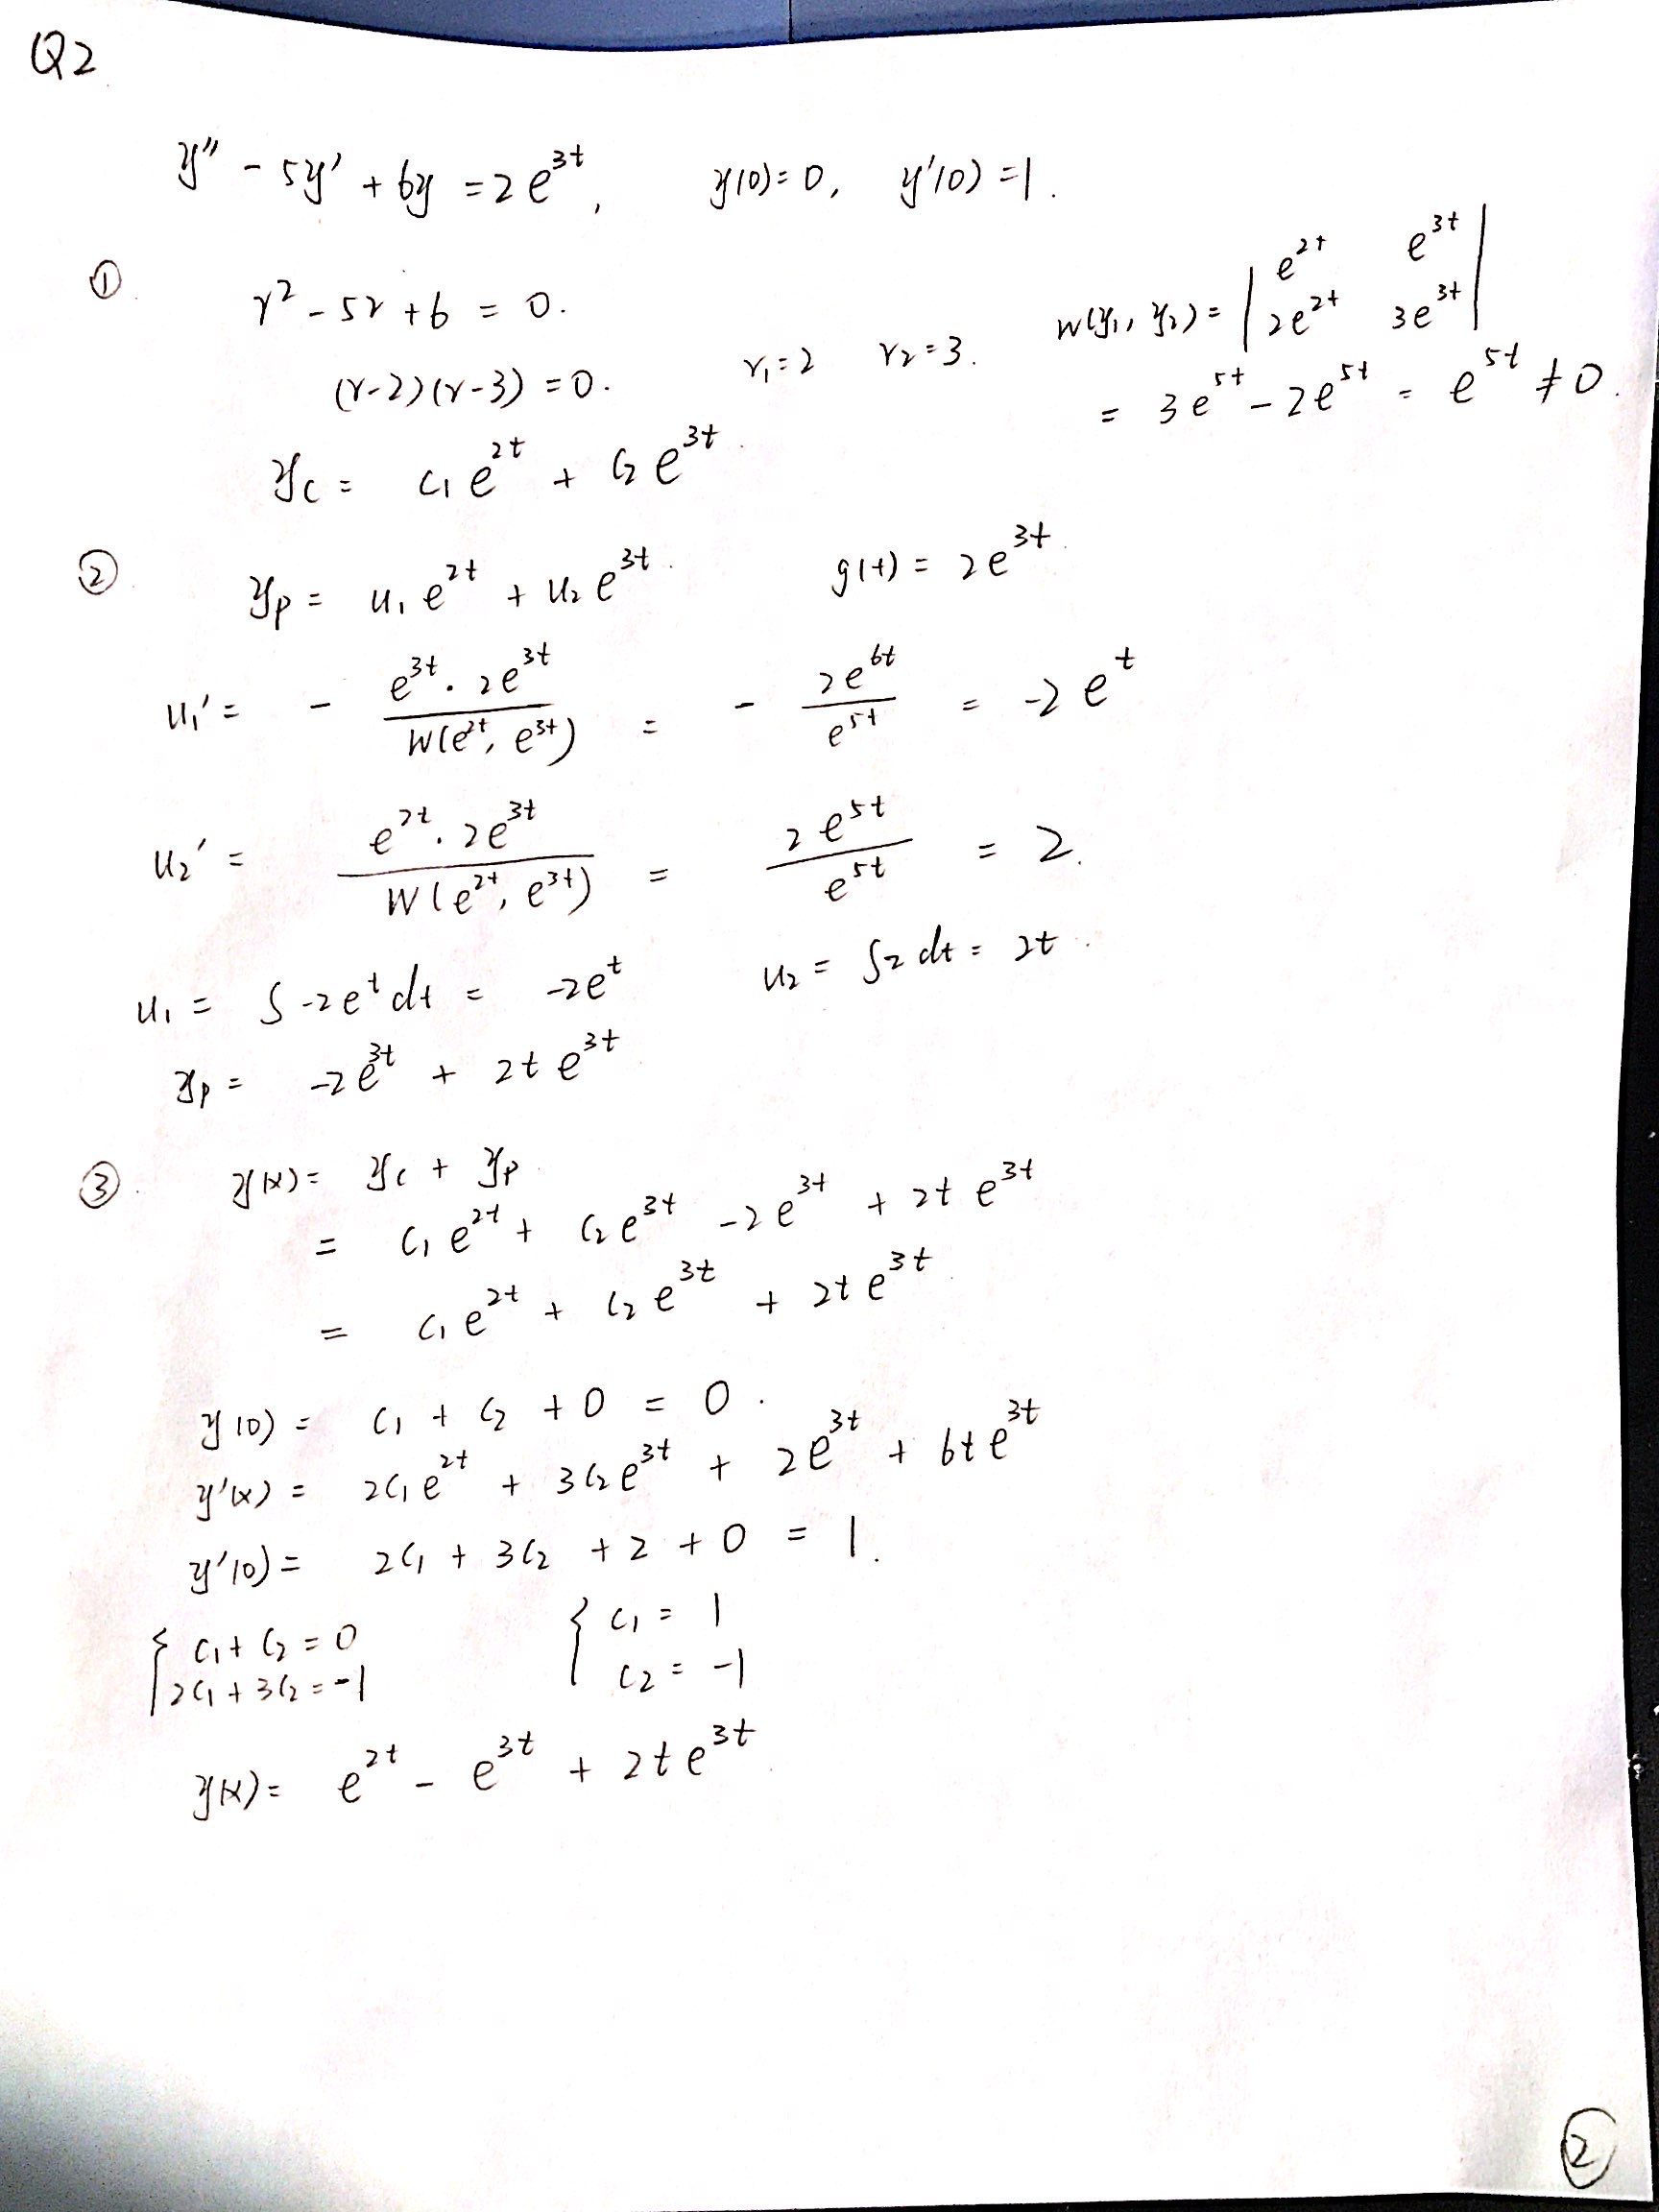 Q2
y'' - 5y' + 6y = 2e^{3t}, y(0) = 0, y'(0) = 1.
① r^2 - 5r + 6 = 0.
(r-2)(r-3) = 0. r_1 = 2 r_2 = 3.
W(y_1, y_2) = | e^{2t} e^{3t} |
| 2e^{2t} 3e^{3t} |
= 3e^{5t} - 2e^{5t} = e^{5t} ≠ 0.
y_c = c_1 e^{2t} + c_2 e^{3t}.
② y_p = u_1 e^{2t} + u_2 e^{3t}. g(t) = 2e^{3t}.
u_1' = - \frac{e^{3t} · 2e^{3t}}{W(e^{2t}, e^{3t})} = - \frac{2e^{6t}}{e^{5t}} = -2e^t
u_2' = \frac{e^{2t} · 2e^{3t}}{W(e^{2t}, e^{3t})} = \frac{2e^{5t}}{e^{5t}} = 2.
u_1 = ∫ -2e^t dt = -2e^t u_2 = ∫2 dt = 2t.
y_p = -2e^{3t} + 2t e^{3t}
③. y(x) = y_c + y_p.
= c_1 e^{2t} + c_2 e^{3t} - 2e^{3t} + 2t e^{3t}
= c_1 e^{2t} + c_2 e^{3t} + 2t e^{3t}.
y(0) = c_1 + c_2 + 0 = 0.
y'(x) = 2c_1 e^{2t} + 3c_2 e^{3t} + 2e^{3t} + 6t e^{3t}
y'(0) = 2c_1 + 3c_2 + 2 + 0 = 1.
{ c_1 + c_2 = 0 { c_1 = 1
2c_1 + 3c_2 = -1 c_2 = -1
y(x) = e^{2t} - e^{3t} + 2t e^{3t}.
②